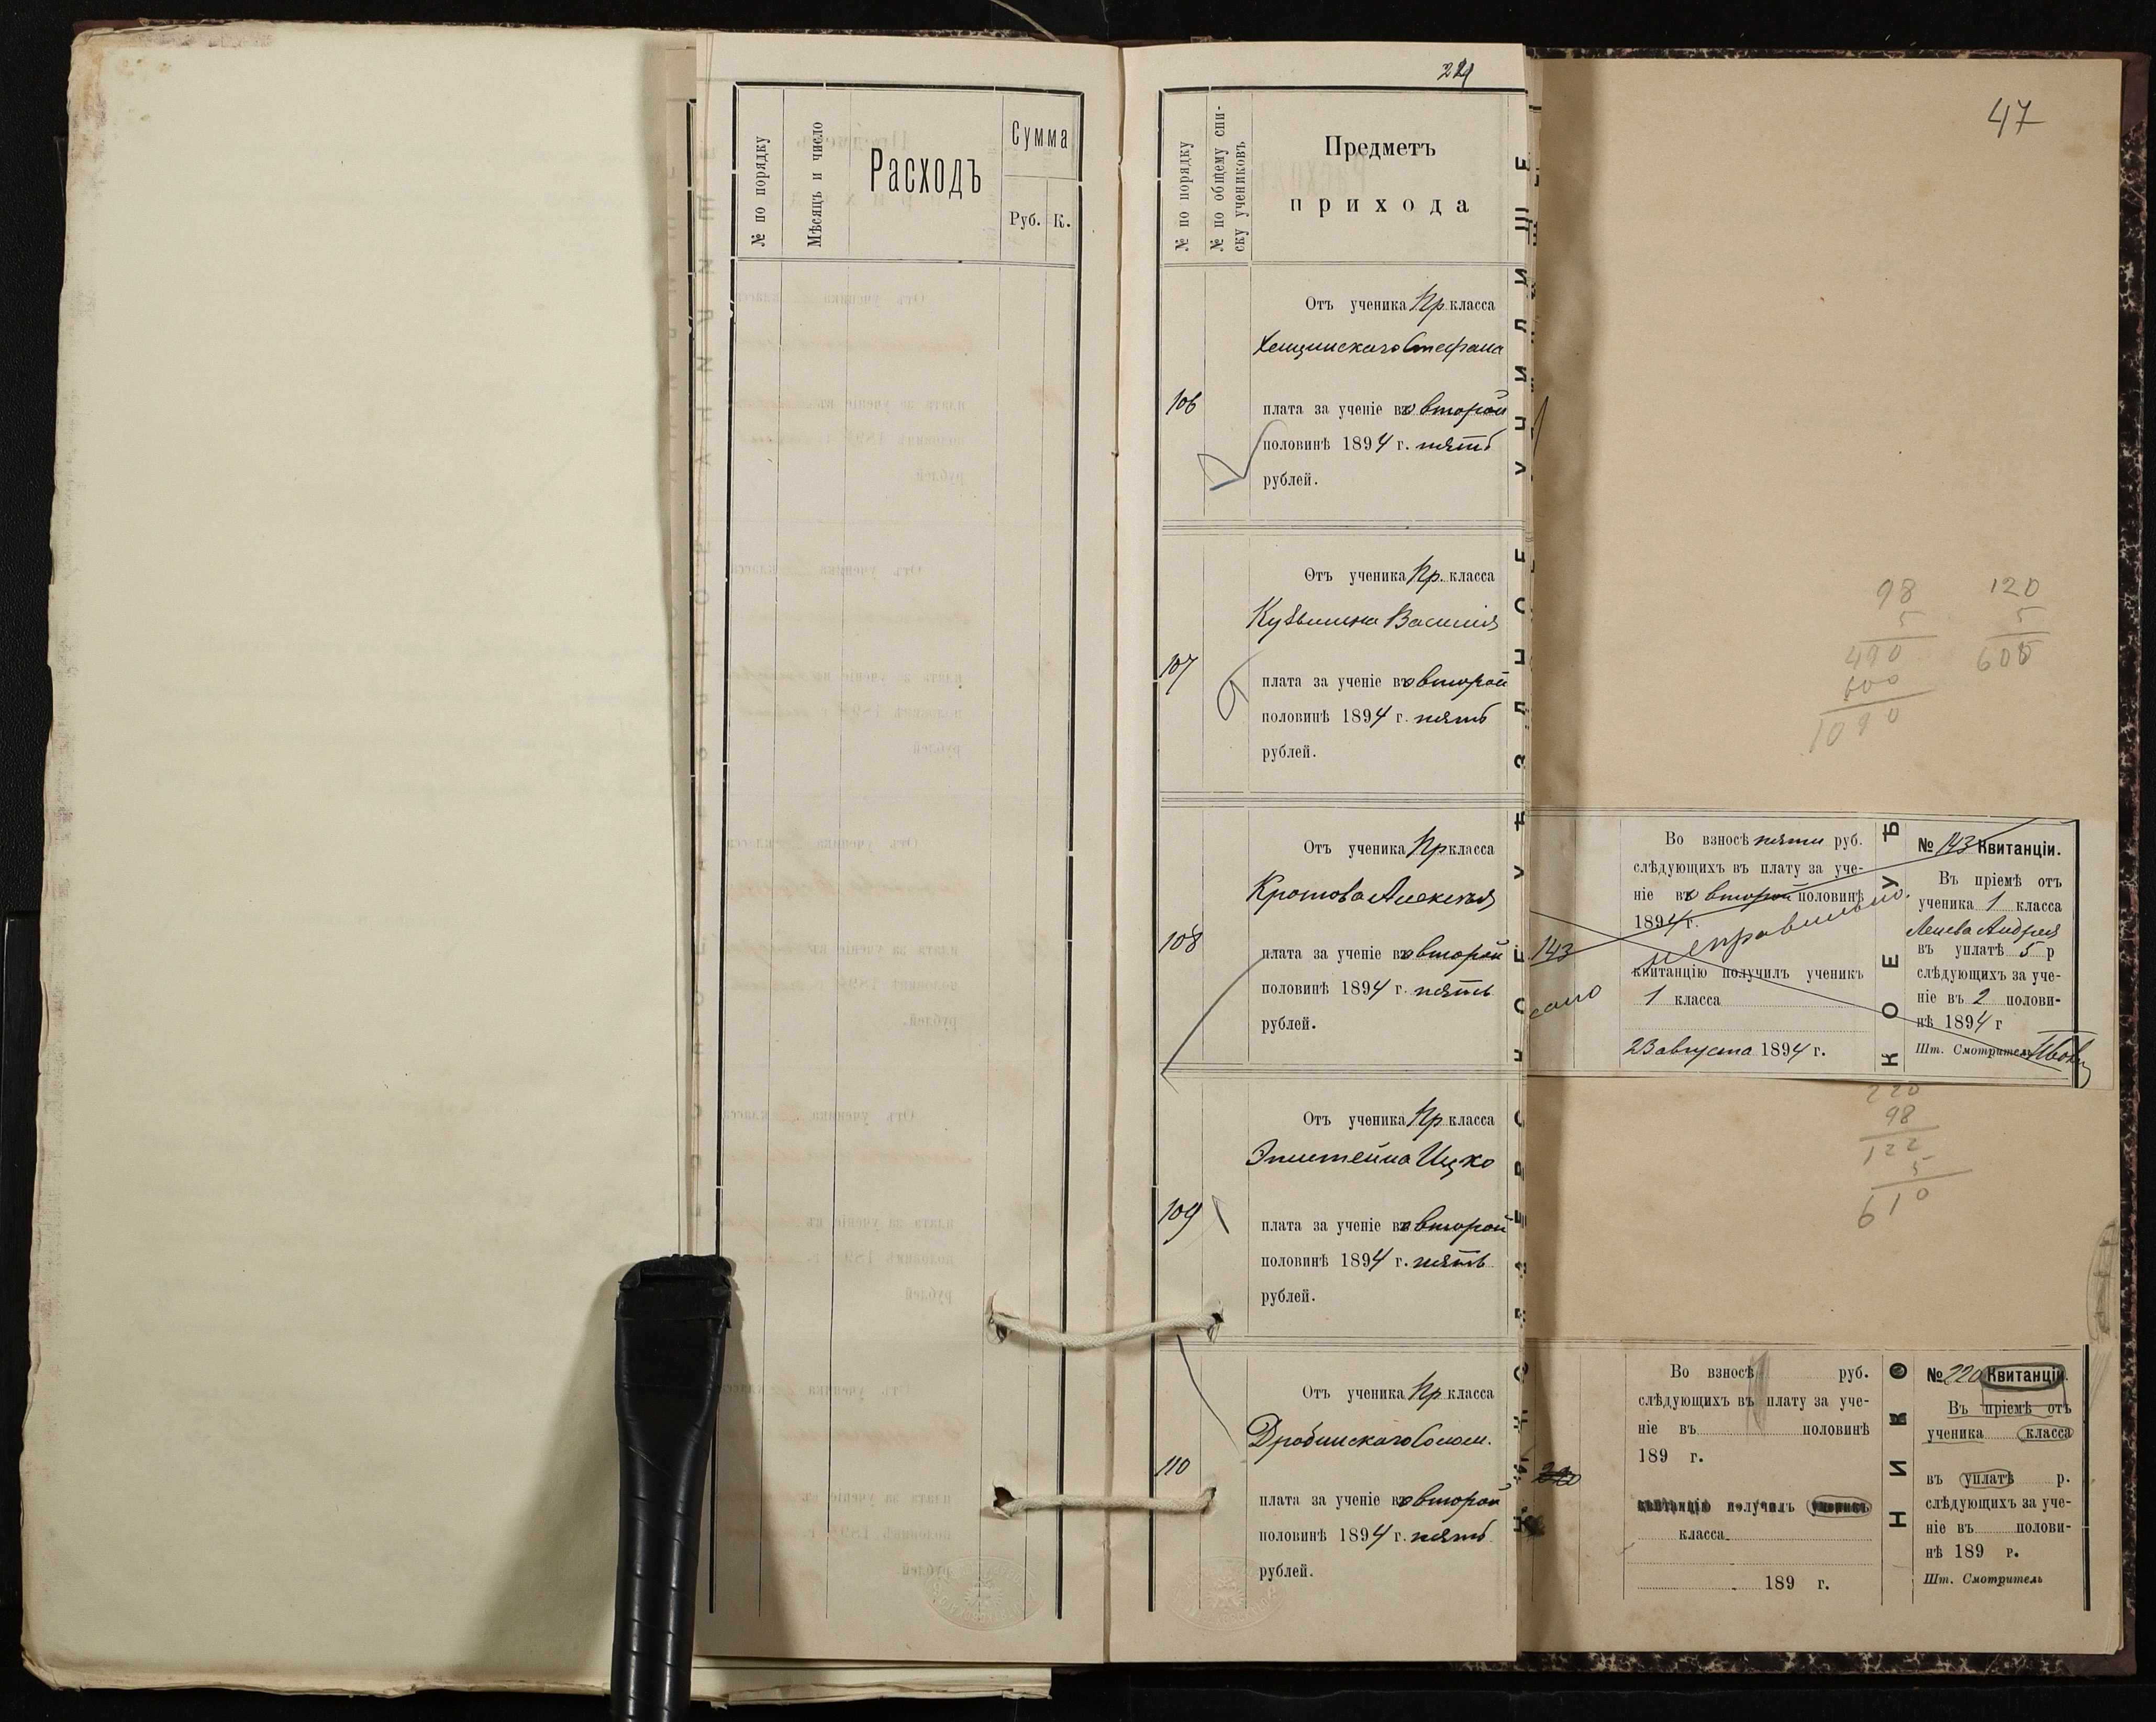 № по порядку
Мѣсяцъ и число
Расходъ
Сумма
Руб. К.
№ по порядку
№ по общему спи-
ску учениковъ
Предметъ
прихода
Отъ ученика Пр. класса
Стефана
106
плата за ученіе въ второй
половинѣ 1894 г. пять
рублей.
Отъ ученика Пр. класса
Василія
107
плата за ученіе въ второй
половинѣ 1894 г. пять
рублей.
Отъ ученика Пр класса
Кротова Алексѣя
108
плата за ученіе въ второй
половинѣ 1894 г. пять
рублей.
Отъ ученика Пр. класса
Эпштейна Ицко
109
плата за ученіе въ второй
половинѣ 1894 г. пять
рублей.
Отъ ученика Пр. класса
Дробинскаго Солом.
110
плата за ученіе въ второй
половинѣ 1894 г. пять
рублей.
47
98
5
490
600
1090
120
5
600
143
Во взносѣ пяти руб.
слѣдующихъ въ плату за уче-
ніе въ второй половинѣ
1894 г.
неправильно.
квитанцію получилъ ученикъ
1 класса
23 августа 1894 г.
КОЕ У
№ 143 Квитанціи.
Въ пріемѣ отъ
ученика 1 класса
Андрея
въ уплатѣ 5 р
слѣдующихъ за уче-
ніе въ 2 полови-
нѣ 1894 г
Шт. Смотритель
220
98
122
5
610
220
Во взносѣ руб.
слѣдующихъ въ плату за уче-
ніе въ половинѣ
189 г.
квитанцію получилъ ученикъ
класса
189 г.
№ 220 Квитанціи.
Въ пріемѣ отъ
ученика класса
въ уплатѣ р.
слѣдующихъ за уче-
ніе въ полови-
нѣ 189 г.
Шт. Смотритель